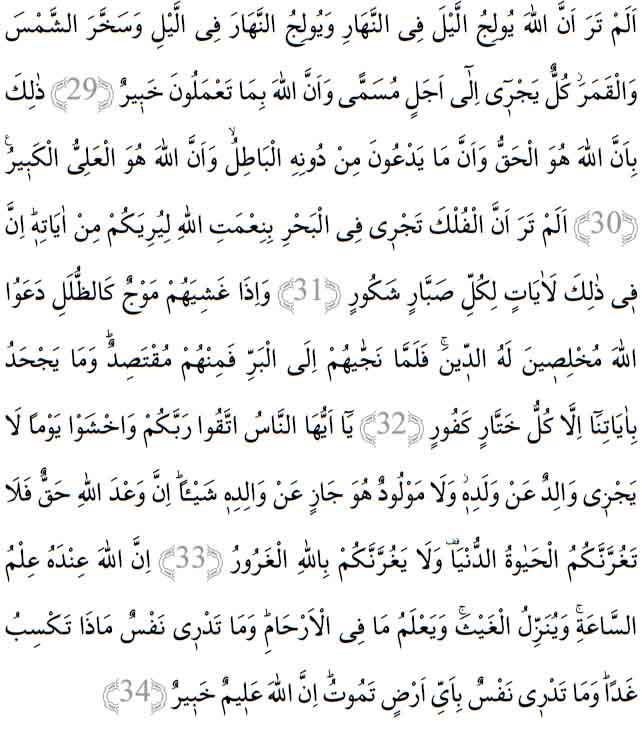 اَلَمْ تَرَ اَنَّ اللهَ يُولِجُ الَّيْلَ فِى النَّهَارِ وَيُولِجُ النَّهَارَ فِى الَّيْلِ وَسَخَّرَ الشَّمْسَ
وَالْقَمَرَۘ كُلٌّ يَجْرٖٓى اِلٰٓى اَجَلٍ مُسَمًّى وَاَنَّ اللهَ بِمَا تَعْمَلُونَ خَبٖيرٌ ﴿29﴾ ذٰلِكَ
بِاَنَّ اللهَ هُوَ الْحَقُّ وَاَنَّ مَا يَدْعُونَ مِنْ دُونِهِ الْبَاطِلُۙ وَاَنَّ اللهَ هُوَ الْعَلِىُّ الْكَبٖيرُ۟
﴿30﴾ اَلَمْ تَرَ اَنَّ الْفُلْكَ تَجْرٖى فِى الْبَحْرِ بِنِعْمَتِ اللهِ لِيُرِيَكُمْ مِنْ اٰيَاتِهٖؕ اِنَّ
فٖى ذٰلِكَ لَاٰيَاتٍ لِكُلِّ صَبَّارٍ شَكُورٍ ﴿31﴾ وَاِذَا غَشِيَهُمْ مَوْجٌ كَالظُّلَلِ دَعَوُا
اللهَ مُخْلِصٖينَ لَهُ الدّٖينَۚ فَلَمَّا نَجّٰيهُمْ اِلَى الْبَرِّ فَمِنْهُمْ مُقْتَصِدٌؕ وَمَا يَجْحَدُ
بِاٰيَاتِنَٓا اِلَّا كُلُّ خَتَّارٍ كَفُورٍ ﴿32﴾ يَٓا اَيُّهَا النَّاسُ اتَّقُوا رَبَّكُمْ وَاخْشَوْا يَوْمًا لَا
يَجْزٖى وَالِدٌ عَنْ وَلَدِهٖۘ وَلَا مَوْلُودٌ هُوَ جَازٍ عَنْ وَالِدِهٖ شَيْـًٔاؕ اِنَّ وَعْدَ اللهِ حَقٌّ فَلَا
تَغُرَّنَّكُمُ الْحَيٰوةُ الدُّنْيَا۠ وَلَا يَغُرَّنَّكُمْ بِاللهِ الْغَرُورُ ﴿33﴾ اِنَّ اللهَ عِنْدَهُ عِلْمُ
السَّاعَةِۚ وَيُنَزِّلُ الْغَيْثَۚ وَيَعْلَمُ مَا فِى الْاَرْحَامِؕ وَمَا تَدْرٖى نَفْسٌ مَاذَا تَكْسِبُ
غَدًاؕ وَمَا تَدْرٖى نَفْسٌ بِاَىِّ اَرْضٍ تَمُوتُؕ اِنَّ اللهَ عَلٖيمٌ خَبٖيرٌ ﴿34﴾